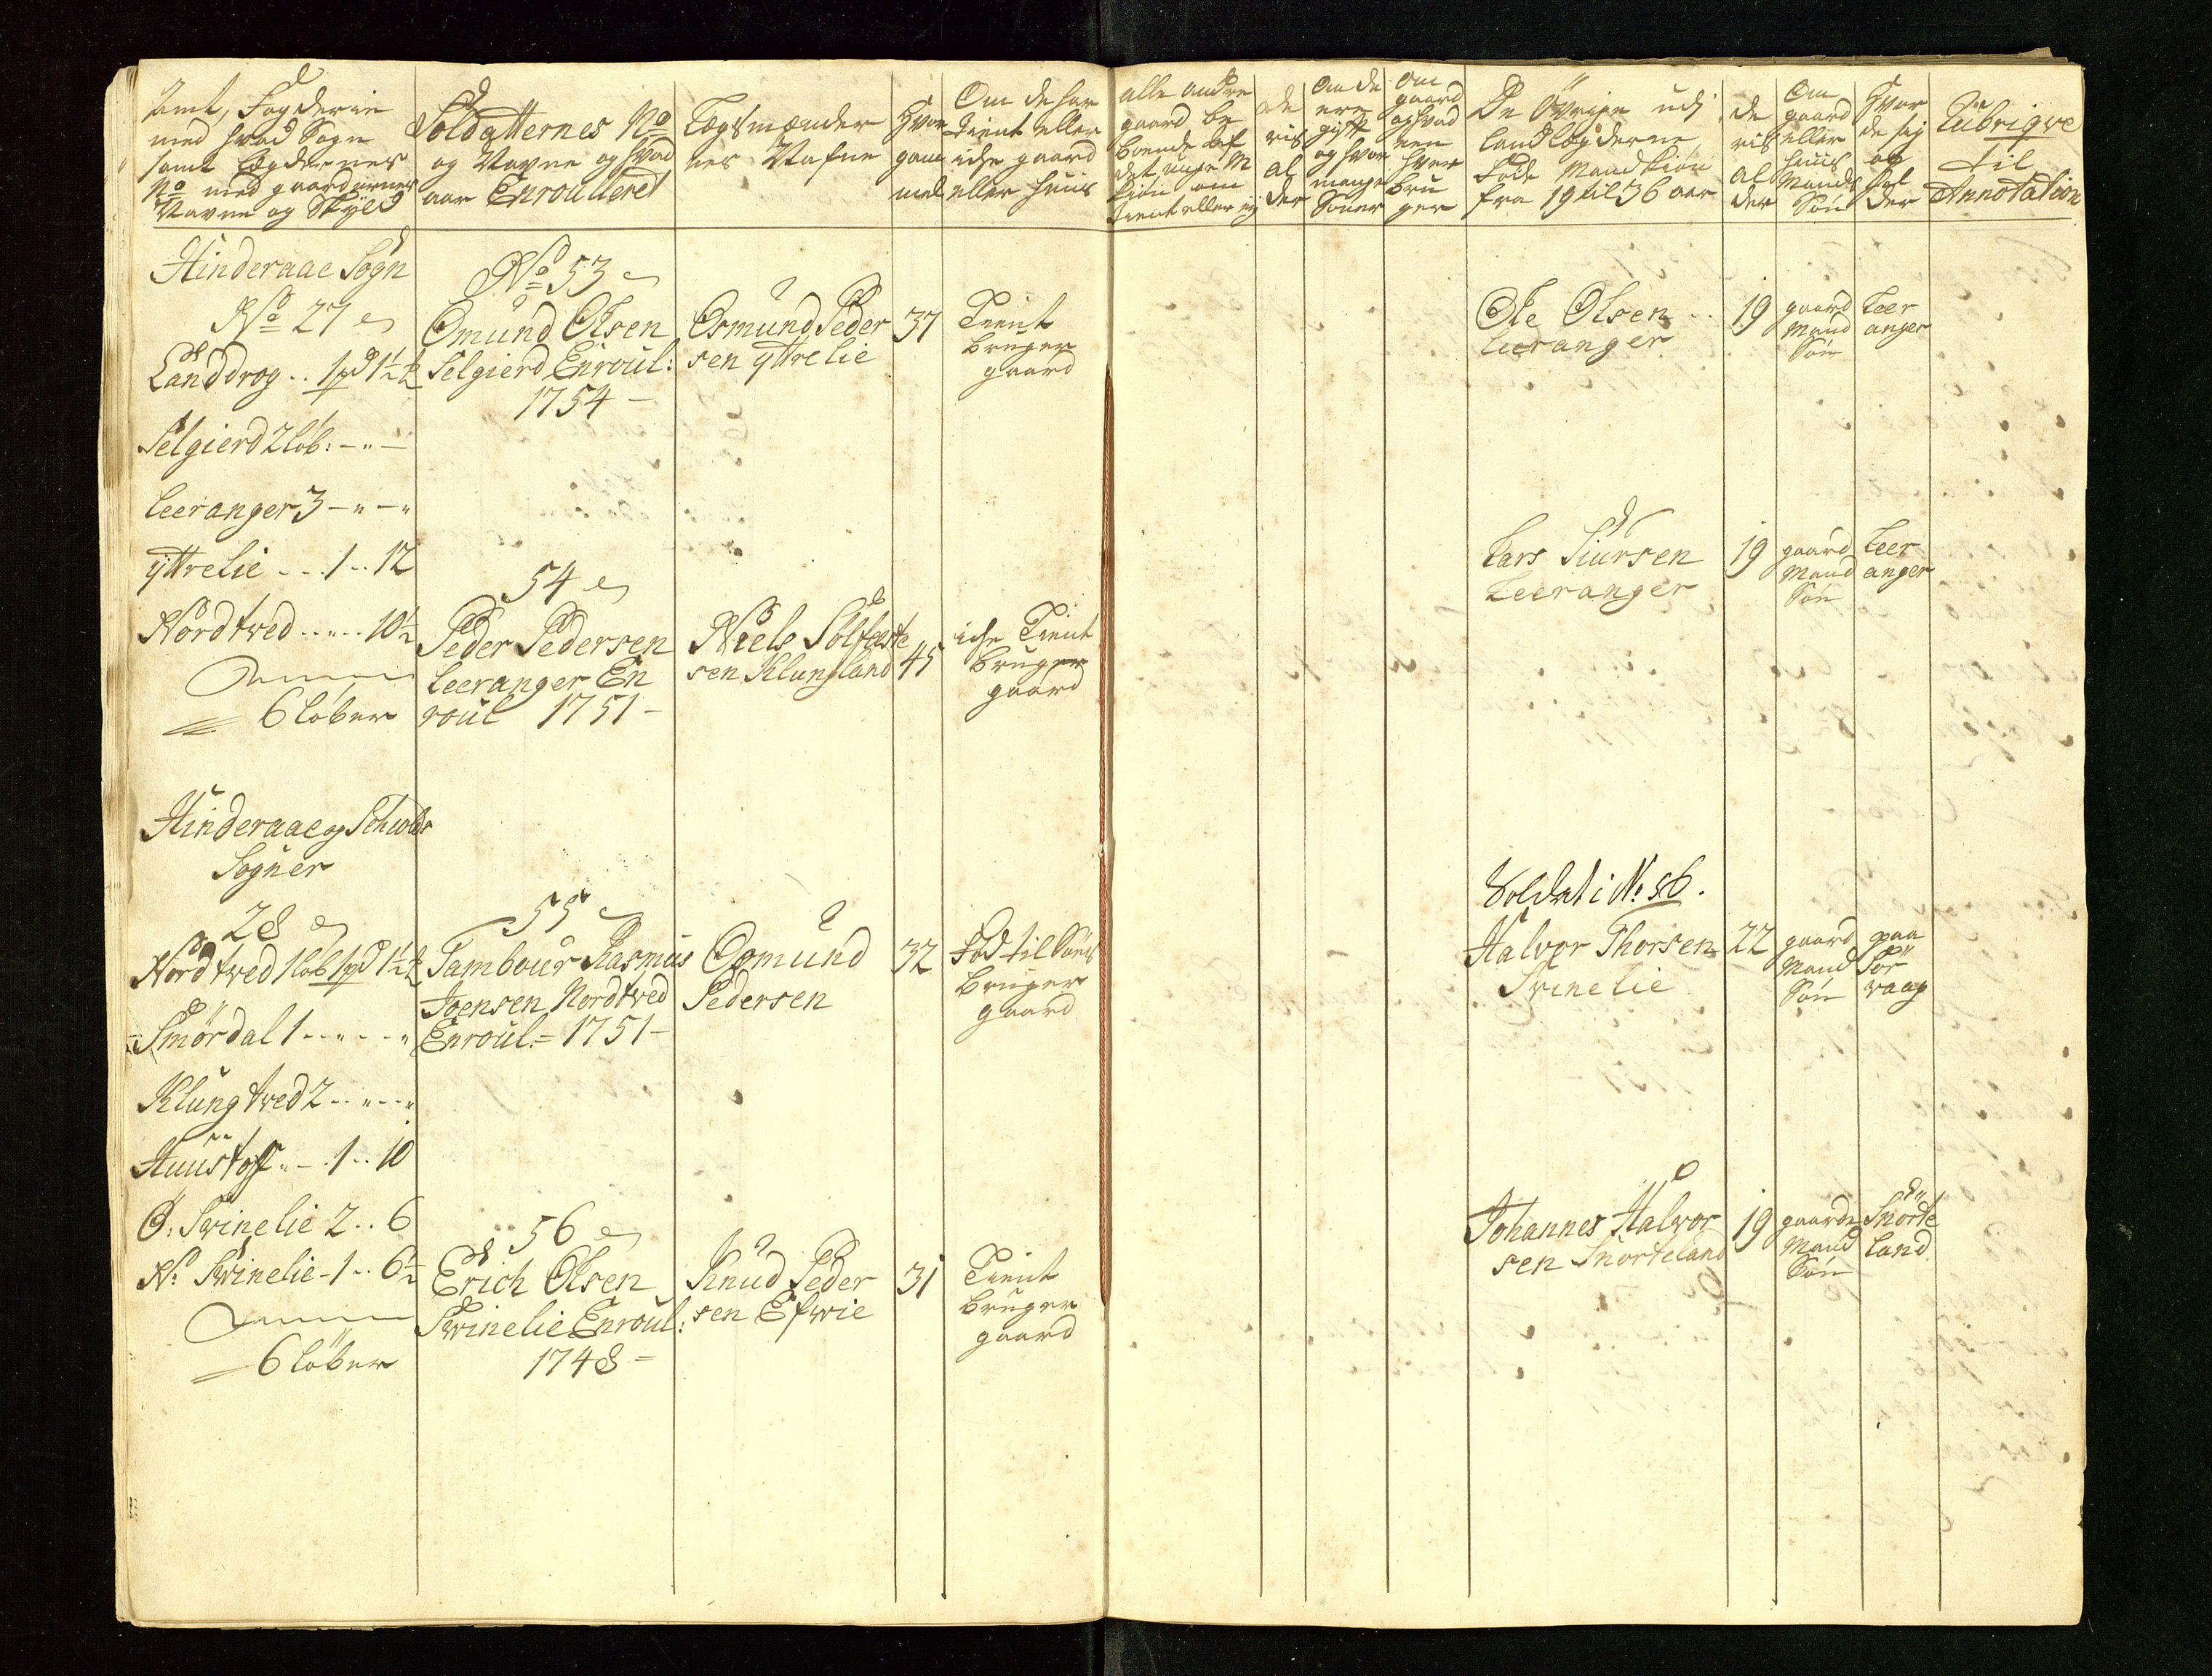 Amt, Fogderie
med hvad Sogn
samt Lægdernes
No med gaardernes
Navne og Skyld
Soldatternes No
og Navne og hvad
aar Enroulleret
Lægsmænder
nes Nafne
Hvor
gam
mel
Om de har
Tient eller
iche gaard
eller huus
alle andre
gaard be
boende
det unge M
kiøn om
tient eller ej
de
ris
al
der
Om de
ere
gift
og hvor
mange
Sønner
Om
gaard
og hvad
een
hver
bru
ger
De Øvrige udj
Landlægderne
Føde Mandkiøn
fra 19 til 36 aar
de
ris
al
der
Om
gaard
eller
huus
Mands
Søn
Hvor
de sig
op
hol
der
Rubriqve
til
Annotation
Hinderaae Sogn
No 27
Landdrog .. 1 pd 1½
Selgierd 2 løb: - " -
Leeranger 3 - " - "
Yttrelie - .. 1 .. 12
Nordtved .. " .. 10½
6 løber
No 53
Omund Olsen
Selgierd Enroul:
1754 -
Osmund Peder
sen Yttrelie
37
Tient
bruger
gaard
Ole Olsen ..
Leeranger
19
gaard
Mand
Søn
Leer
anger
54
Peder Pedersen
Leeranger En
roul 1751 -
Niels Solfeste
sen Klungland
45
iche Tient
bruger
gaard
Lars Siursen
Leeranger
19
gaard
Mand
Søn
Leer
anger
Hinderaae og Schiold
Sogner
28
Nordtved 1 løb 1 pd 1½
Smørdal 1 - .. " - .. "
Klungtved 2 .. " .. "
Huustoft .. - 1 .. 10
Ø: Svinelie 2 .. 6
N: Svinelie - 1 .. 6½
6 løber
55
Tambour Rasmus
Joensen Nordtved
Enroul = 1751 -
Osmund
Pedersen
32
Fød til Søes
bruger
gaard
Soldat i N: 56.
Halvor Thorsen
Svinelie
22
gaard
Mand
Søn
paa
Før
vaag
56
Erich Olsen
Svinelie Enroul:
1748 =
Knud Peder
sen Efwie
31
Tient
bruger
gaard
Johannes Halvor
sen Snørteland
19
gaards
Mand
Søn
Snørte
land